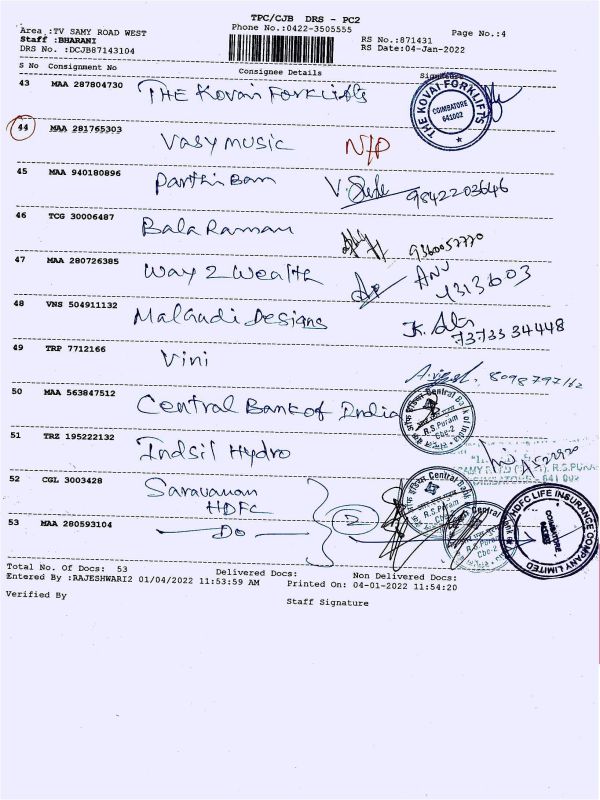 TPC/CJB DRS - PC2
Area :TV SAMY ROAD WEST
Phone No.:0422-3505555
Page No.:4
Staff :BHARANI
RS No.:871431
DRS No. :DCJB87143104
RS Date:04-Jan-2022
S No Consignment No
Consignee Details
Signature
43 MAA 287804730 THE Kovai Forklifts
THE KOVAI-FORKLIFTS
COIMBATORE
641002
44 MAA 281765303 Vasy Music N/P
45 MAA 940180896 9842203646
46 TCG 30006487 Bala Raman
47 MAA 280726385 Way 2 Wealth
48 VNS 504911132 Malgudi Designs 73733 34448
49 TRP 7712166 Vini
50 MAA 563847512 Central Bank of India
Central Bank of India
R.S.Puram
Cbe-2
51 TRZ 195222132 Indsil Hydro
52 CGL 3003428 Saravanan
HDFC
Central Bank
R.S.Puram
53 MAA 280593104 — Do —
2
Central
R.S.Puram
Cbe-2
HDFC LIFE INSURANCE COMPANY LIMITED
COIMBATORE
Total No. of Docs: 53
Delivered Docs:
Non Delivered Docs:
Entered By :RAJESHWARI2 01/04/2022 11:53:59 AM
Printed On: 04-01-2022 11:54:20
Verified By
Staff Signature